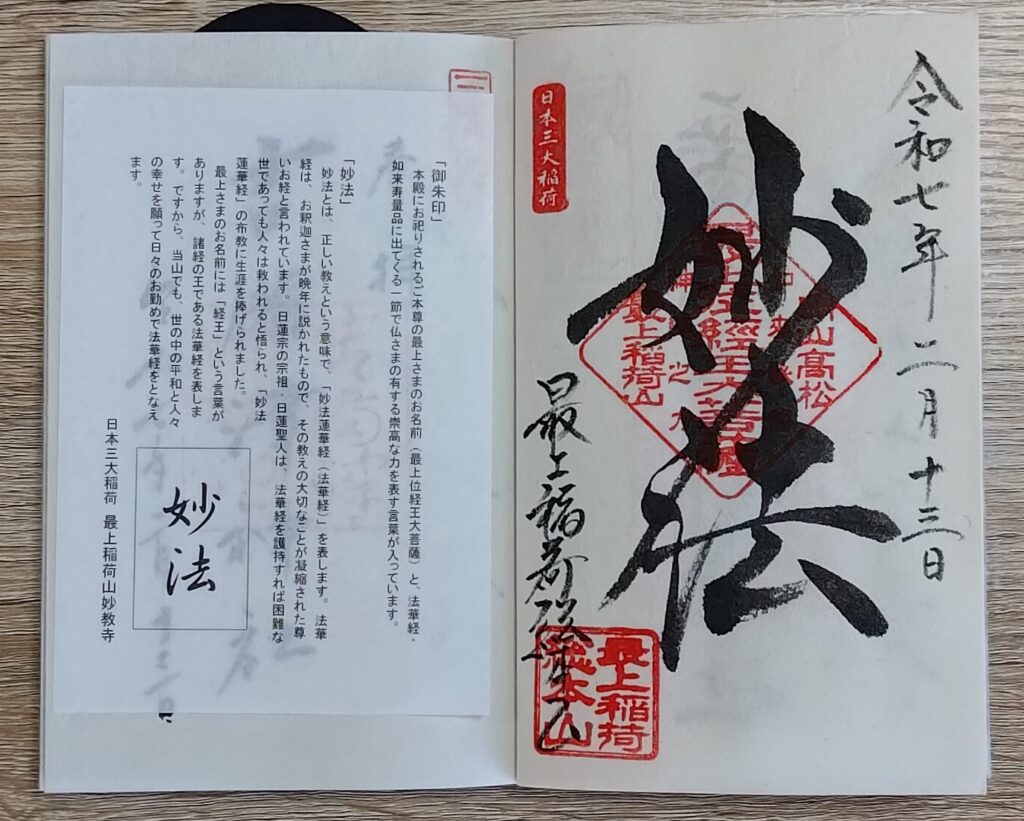 令和七年二月十三日
妙法
山高松
最上稲荷山
日本三大稲荷
最上稲荷
最上稲荷
總本山
「御朱印」
本殿にお祀りされるご本尊の最上さまのお名前（最上位経王大菩薩）と、法華経・
如来寿量品に出てくる一節で仏さまの有する崇高な力を表す言葉が入っています。
「妙法」
妙法とは、正しい教えという意味で、「妙法蓮華経（法華経）」を表します。法華
経は、お釈迦さまが晩年に説かれたもので、その教えの大切なことが凝縮された尊
いお経と言われています。日蓮宗の宗祖・日蓮聖人は、法華経を護持すれば困難な
世であっても人々は救われると悟られ、「妙法
蓮華経」の布教に生涯を捧げられました。
最上さまのお名前には「経王」という言葉が
ありますが、諸経の王である法華経を表しま
す。ですから、当山でも、世の中の平和と人々
の幸せを願って日々のお勤めで法華経をとなえ
ます。
妙法
日本三大稲荷 最上稲荷山妙教寺